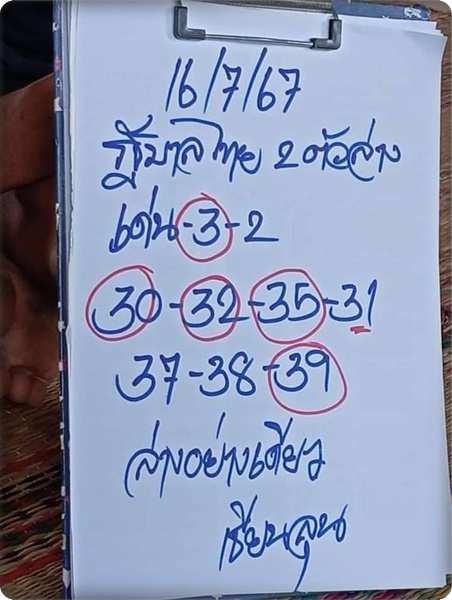 16/7/67
รัฐบาลไทย 2 ตัวล่าง
เด่น-3-2
30-32-35-31
37-38-39
ล่างอย่างเดียว
เซียนลุน